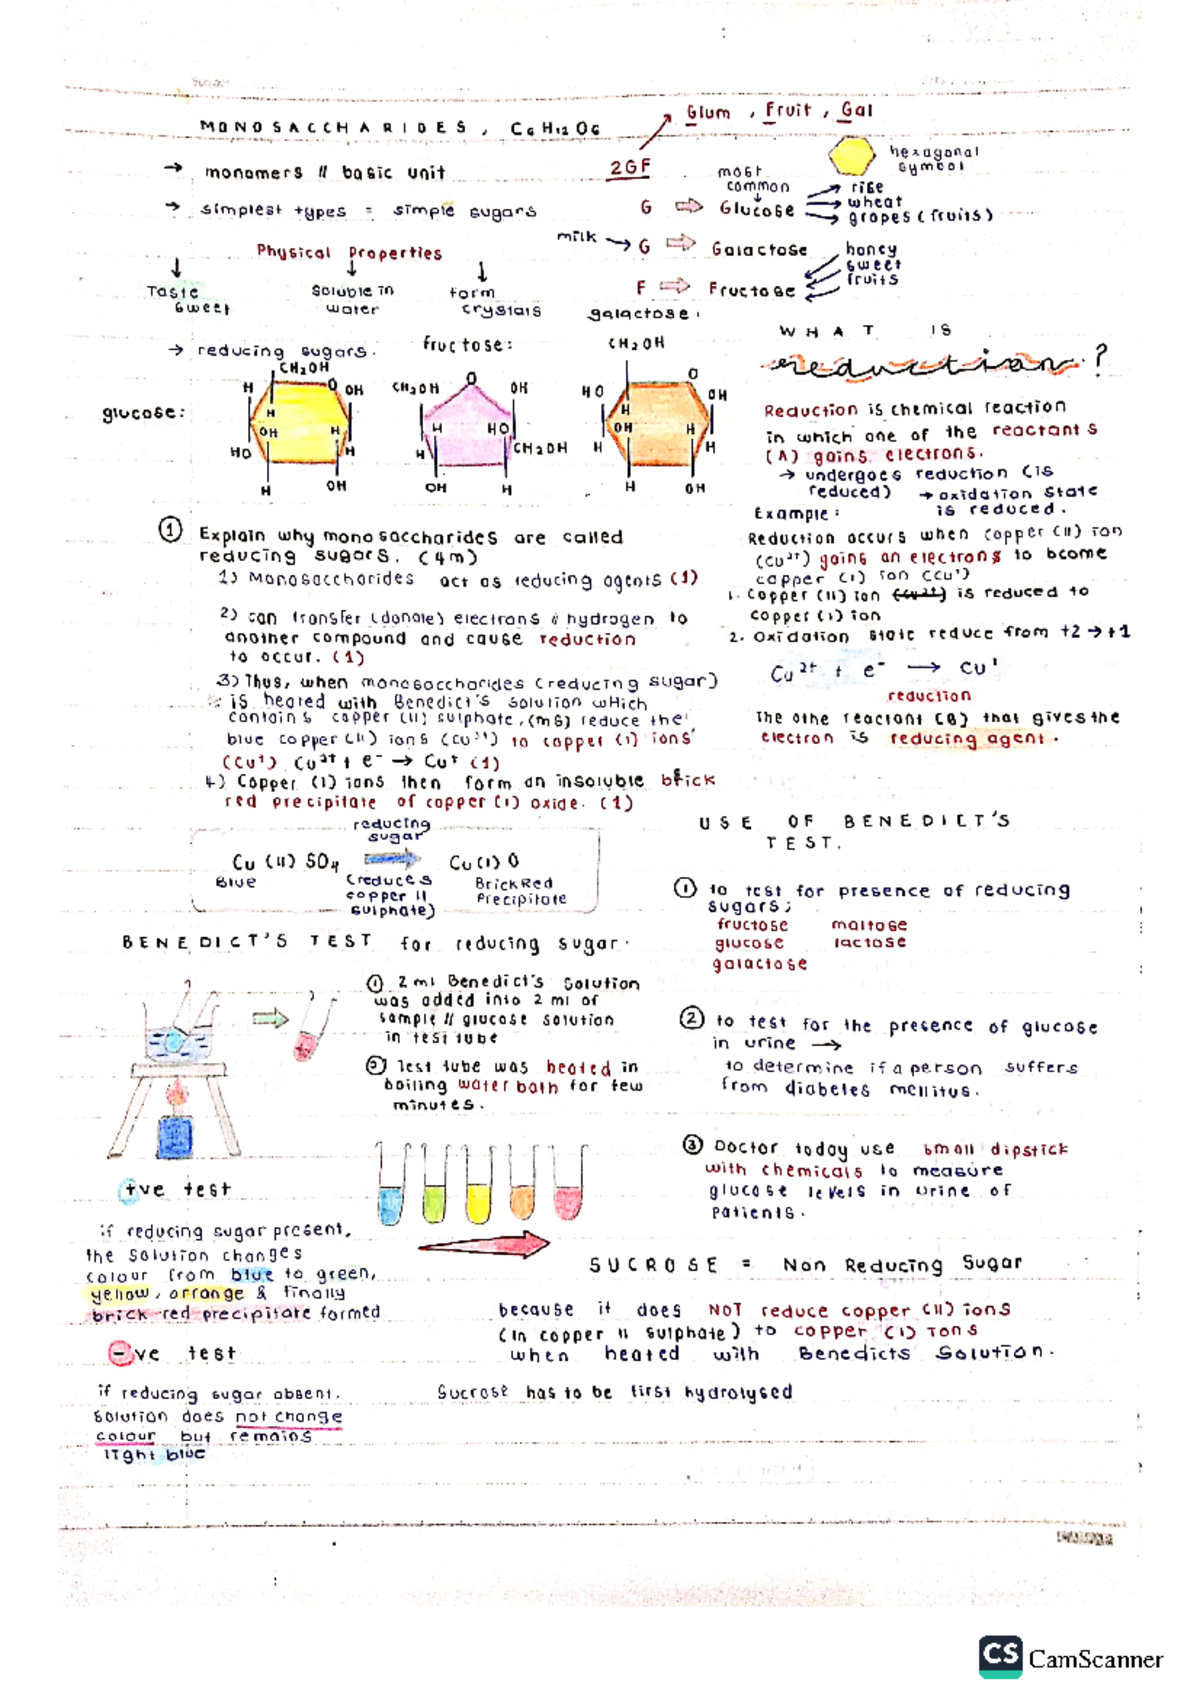 MONOSACCHARIDES, C6H12O6
Glum, Fruit, Gal
2GF
hexagonal
symbol
→ monomers // basic unit
→ simplest types = simple sugars
most
common
G ⇒ Glucose
rise
wheat
grapes (fruits)
milk → G ⇒ Galactose
F ⇒ Fructose
honey
sweet
fruits
Physical Properties
Taste
sweet
Soluble in
water
form
crystals
→ reducing sugars.
glucose:
CH2OH
H
O
OH
H
OH
H
HO
H
H
OH
fructose:
CH2OH
O
OH
H
HO
H
CH2OH
OH
H
galactose:
CH2OH
HO
O
OH
H
OH
H
H
H
H
OH
WHAT IS
reduction?
Reduction is chemical reaction
in which one of the reactants
(A) gains electrons.
→ undergoes reduction (is
reduced) → oxidation state
is reduced.
Example:
Reduction occurs when copper (II) ion
(Cu2+) going an electrons to bcome
copper (I) ion (Cu+)
1. Copper (II) ion (Cu2+) is reduced to
copper (I) ion
2. Oxidation state reduce from +2 → +1
Cu2+ + e- → Cu+
reduction
The othe reactant (B) that gives the
electron is reducing agent.
① Explain why monosaccharides are called
reducing sugars. (4m)
1) Monosaccharides act as reducing agents (1)
2) can transfer (donate) electrons // hydrogen to
another compound and cause reduction
to occur. (1)
3) Thus, when monosaccharides (reducing sugar)
is heated with Benedict's solution which
contains copper (II) sulphate, (mS) reduce the
blue copper (II) ions (Cu2+) to copper (I) ions
(Cu+) Cu2+ + e- → Cu+ (1)
4) Copper (I) ions then form an insoluble brick
red precipitate of copper (I) oxide. (1)
reducing
sugar
Cu (II) SO4 → Cu(I) O
Blue
(reduces
copper II
sulphate)
BrickRed
Precipitate
BENEDICT'S TEST for reducing sugar.
① 2 ml Benedict's solution
was added into 2 ml of
sample // glucose solution
in test tube
② Test tube was heated in
boiling water bath for few
minutes.
+ve test
if reducing sugar present,
the solution changes
colour from blue to green,
yellow, orrange & finally
brick-red precipitate formed
-ve test
if reducing sugar absent.
solution does not change
colour but remains
light blue
USE OF BENEDICT'S
TEST.
① to test for presence of reducing
sugars;
fructose maltose
glucose lactose
galactose
② to test for the presence of glucose
in urine →
to determine if a person suffers
from diabetes mellitus.
③ Doctor today use small dipstick
with chemicals to measure
glucose levels in urine of
patients.
SUCROSE = Non Reducing Sugar
because it does NOT reduce copper (II) ions
(in copper II sulphate) to copper (I) ions
when heated with Benedicts Solution.
Sucrose has to be first hydrolysed
CS CamScanner